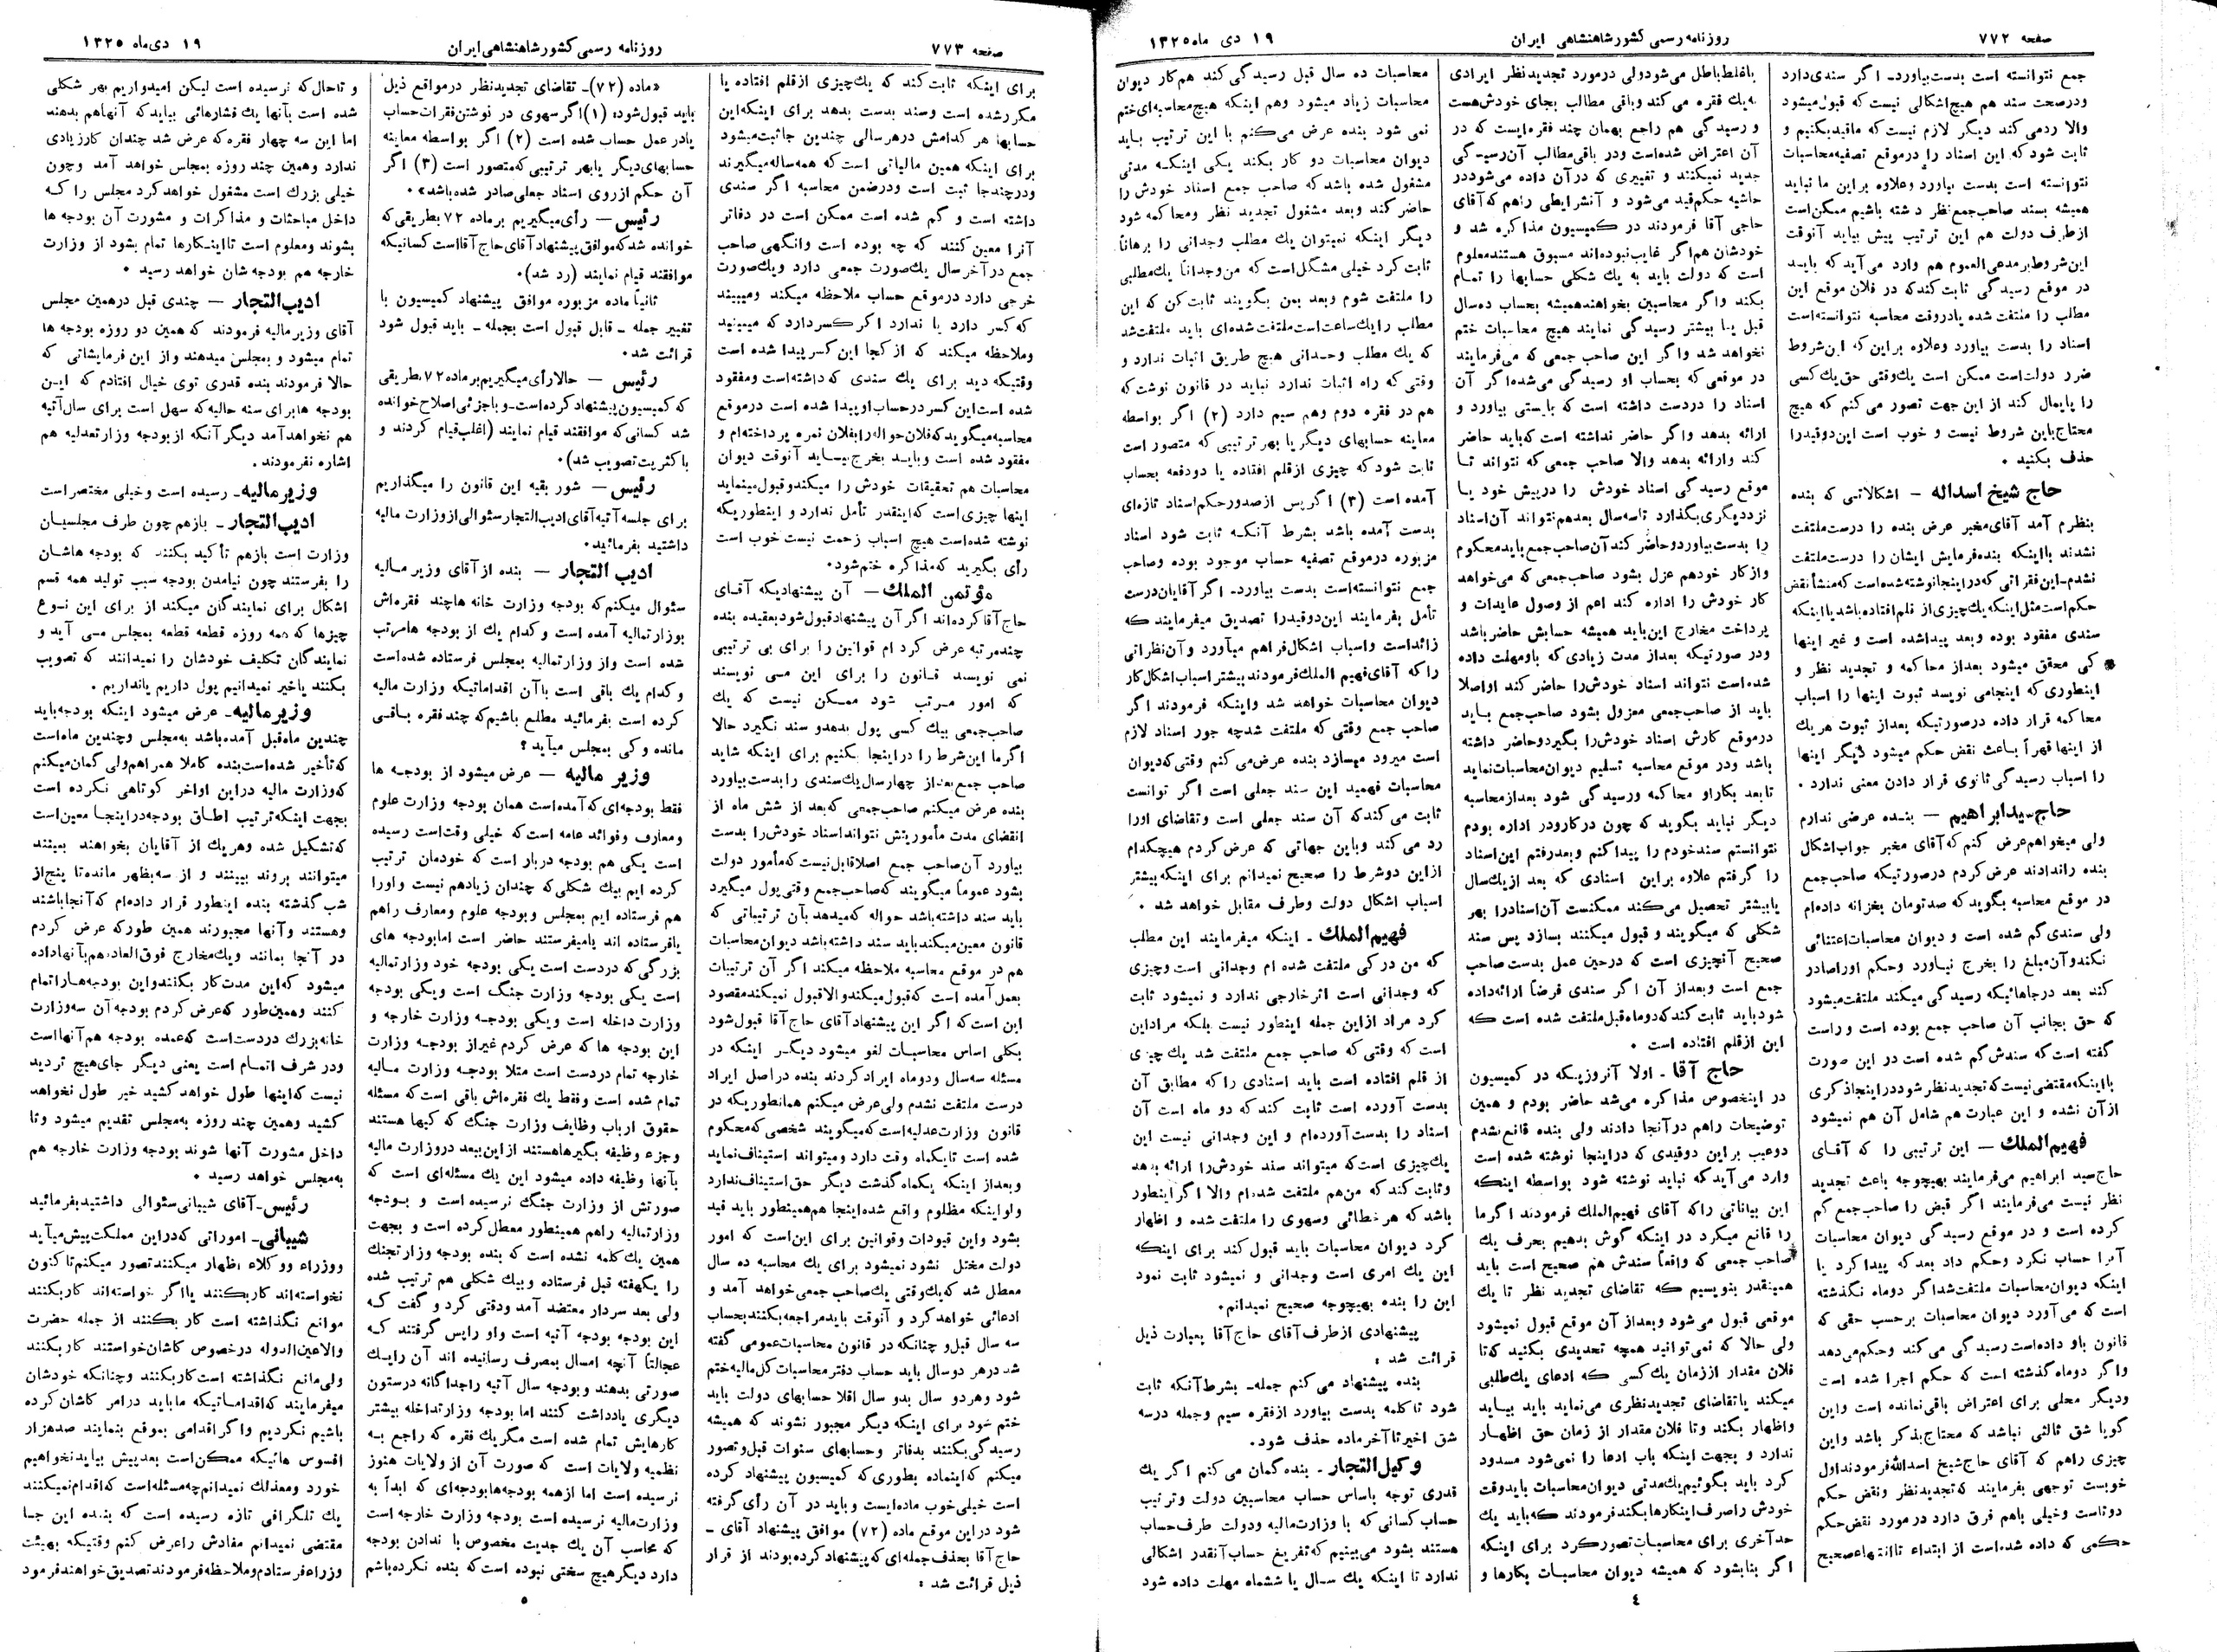 صفحه ۷۷۲
روزنامه رسمی کشور شاهنشاهی ایران
۱۹ دی ماه ۱۳۲۵
جمع نتوانسته است بدست بیاورد- اگر سندی دارد
ودرصحت سند هم هیچ اشکالی نیست که قبول میشود
والا رد می کند دیگر لازم نیست که ما قید بکنیم و
ثابت شود که این اسناد را درموقع تصفیه محاسبات
نتوانسته است بدست بیاورد وعلاوه براین ما نباید
همیشه بسند صاحب جمع نظر داشته باشیم ممکن است
ازطرف دولت هم این ترتیب پیش بیاید آنوقت
این شروط بر مدعی العموم هم وارد می آید که بایـد
در موقع رسیدگی ثابت کند که در فلان موقع این
مطلب را ملتفت شده یا در وقت محاسبه نتوانسته است
اسناد را بدست بیاورد وعلاوه براین که این شروط
ضرر دولت است ممکن است یك وقتی حق یك کسی
را پایمال کند از این جهت تصور می کنم که هیچ
محتاج باین شروط نیست و خوب است این دو قید را
حذف بکنید .
حاج شیخ اسداله – اشکالاتی که بنده
بنظرم آمد آقای مخبر عرض بنده را درست ملتفت
نشدند یا اینکه بنده فرمایش ایشان را درست ملتفت
نشدم- این فقراتی که در اینجا نوشته شده است که منشأ نقض
حکم است مثل اینکه یك چیزی از قلم افتاده باشد یا اینکه
سندی مفقود بوده وبعد پیدا شده است و غیر اینها
کی محقق میشود بعد از محاکمه و تجدید نظر و
اینطوری که اینجا می نویسد ثبوت اینها را اسباب
محاکمه قرار داده درصورتیکه بعد از ثبوت هر یك
از اینها قهراً باعث نقض حکم میشود دیگر اینها
را اسباب رسیدگی ثانوی قرار دادن معنی ندارد .
حاج سید ابراهیم – بنـده عرضی ندارم
ولی میخواهم عرض کنم که آقای مخبر جواب اشکال
بنده را ندادند عرض کردم درصورتیکه صاحب جمع
در موقع محاسبه بگوید که صد تومان بخزانه داده ام
ولی سندی گم شده است و دیوان محاسبات اعتنائی
نکند و آن مبلغ را بخرج نیاورد وحکم او را صادر
کند بعد در جاهائیکه رسیدگی میکند ملتفت میشود
که حق بجانب آن صاحب جمع بوده است و راست
گفته است که سندش گم شده است در این صورت
با اینکه مقتضی نیست که تجدید نظر شود در اینجا ذکری
از آن نشده و این عبارت هم شامل آن هم نمیشود
فهیم الملك – این ترتیبی را که آقـای
حاج سید ابراهیم می فرمایند بهیچوجه باعث تجدید
نظر نیست می فرمایند اگر قبض را صاحب جمع گم
کرده است و در موقع رسیدگی دیوان محاسبات
آنرا حساب نکرد وحکم داد بعد که پیدا کرد یا
اینکه دیوان محاسبات ملتفت شد اگر دوماه نگذشته
است که می آورد دیوان محاسبات بر حسب حقی که
قانون باو داده است رسیدگی می کند وحکم می دهد
واگر دوماه گذشته است که حکم اجرا شده است
ودیگر محلی برای اعتراض باقی نمانده است واین
گویا شق ثالثی نباشد که محتاج بذکر باشد واین
چیزی راهم که آقای حاج شیخ اسدالله فرمودند اول
خوبست توجهی بفرمایند که تجدید نظر ونقض حکم
دو تاست وخیلی باهم فرق دارد در مورد نقض حکم
حکمی که داده شده است از ابتداء تا انتهاء صحیح
یا غلط باطل می شود ولی در مورد تجدید نظر ایرادی
به یك فقره می کند و باقی مطالب بجای خودش هست
و رسیدگی هم راجع بهمان چند فقره ایست که در
آن اعتراض شده است ودر باقی مطالب آن رسیـدگی
جدید نمیکنند و تغییری که در آن داده می شود در
حاشیه حکم قید می شود و آنشرایطی راهم که آقای
حاجی آقا فرمودند در کمیسیون مذاکره شد و
خودشان هم اگر غایب نبوده اند مسبوق هستند معلوم
است که دولت باید به یك شکلی حسابها را تمـام
بکند واگر محاسبین بخواهند همیشه بحساب ده سال
قبل یـا بیشتر رسیدگی نمایند هیچ محاسبات ختم
نخواهد شد واگر این صاحب جمعی که می فرمایند
در موقعی که بحساب او رسیدگی می شده اگر آن
اسناد را در دست داشته است که بایستی بیاورد و
ارائه بدهد واگر حاضر نداشته است که باید حاضر
کند وارائه بدهد والا صاحب جمعی که نتواند تـا
موقع رسیدگی اسناد خودش را در پیش خود یـا
نزد دیگری بگذارد تا سه سال بعد هم نتواند آن اسناد
را بدست بیاورد و حاضر کند آن صاحب جمع باید محکوم
واز کار خودهم عزل بشود صاحب جمعی که می خواهد
کار خودش را اداره کند اعم از وصول عایدات و
پرداخت مخارج این باید همیشه حسابش حاضر باشد
ودر صورتیکه بعد از مدت زیادی که باو مهلت داده
شده است نتواند اسناد خودش را حاضر کند او اصلا
باید از صاحب جمعی معزول بشود صاحب جمع بـاید
در موقع کارش اسناد خودش را بگیرد و حاضر داشته
باشد ودر موقع محاسبه تسلیم دیوان محاسبات نماید
تا بعد بکار او محاکمه و رسیدگی شود بعد از محاسبه
دیگر نیاید بگوید که چون در کار و در اداره بودم
نتوانستم سند خودم را پیدا کنم و بعد رفتم این اسناد
را گرفتم علاوه براین اسنادی که بعد از یك سال
یا بیشتر تحصیل می کند ممکنست آن اسناد را بهر
شکلی که میگویند و قبول میکنند بسازد پس سند
صحیح آنچیزی است که در حین عمل بدست صاحب
جمع است وبعد از آن اگر سندی فرضاً ارائه داده
شود باید ثابت کند که دوماه قبل ملتفت شده است که
این از قلم افتاده است .
حاج آقا - اولا آنروزیکه در کمیسیون
در اینخصوص مذاکره می شد حاضر بودم و همین
توضیحات راهم در آنجا دادند ولی بنده قانع نشدم
دو عیب بر این دو قیدی که در اینجا نوشته شده است
وارد می آید که نباید نوشته شود بواسطه اینکه
این بیاناتی را که آقای فهیم الملك فرمودند اگر ما
را قانع میکرد در اینکه گوش بدهیم بحرف یك
صاحب جمعی که واقعاً سندش هم صحیح است باید
همینقدر بنویسیم که تقاضای تجدید نظر تا یك
موقعی قبول می شود وبعد از آن موقع قبول نمیشود
ولی حالا که نمی توانید همچه تحدیدی بکنید که تا
فلان مقدار از زمان یك کسی که ادعای یك طلبی
میکند یا تقاضای تجدید نظری می نماید باید بیـاید
واظهار بکند وتا فلان مقدار از زمان حق اظهـار
ندارد و بجهت اینکه باب ادعا را نمی شود مسدود
کرد باید بگوئیم یك مدتی دیوان محاسبات باید وقت
خودش را صرف اینکارها بکند فرمودند که باید یك
حد آخری برای محاسبات تصور کرد برای اینکه
اگر بنا بشود که همیشه دیوان محاسبـات بکارها و
محاسبات ده سال قبل رسیدگی کند هم کار دیوان
محاسبات زیاد میشود وهم اینکه هیچ محاسبه ای ختم
نمی شود بنده عرض می کنم با این ترتیب بـاید
دیوان محاسبات دو کار بکند یکی اینکـه مدتی
مشغول شده باشد که صاحب جمع اسناد خودش را
حاضر کند وبعد مشغول تجدید نظر ومحاکمه شود
دیگر اینکه نمیتوان یك مطلب وجدانی را برهاناً
ثابت کرد خیلی مشکل است که من وجداناً یك مطلبی
را ملتفت شوم وبعد بمن بگویند ثابت کن که این
مطلب را یك ساعت است ملتفت شده ای باید ملتفت شد
که یك مطلب وجـدانی هیچ طریق اثبات ندارد و
وقتی که راه اثبات ندارد نباید در قانون نوشت که
هم در فقره دوم وهم سیم دارد (۲) اگر بواسطه
معاینه حسابهای دیگر یا بهر ترتیبی که متصور است
ثابت شود که چیزی از قلم افتاده یا دودفعه بحساب
آمده است (۳) اگر پس از صدور حکم اسناد تازه ای
بدست آمده باشد بشرط آنکـه ثابت شود اسناد
مزبوره در موقع تصفیه حساب موجود بوده وصاحب
جمع نتوانسته است بدست بیاورد- اگر آقایان درست
تأمل بفرمایند این دو قید را تصدیق میفرمایند که
زائد است واسباب اشکال فراهم میآورد و آن نظراتی
را که آقای فهیم الملك فرمودند بیشتر اسباب اشکال کار
دیوان محاسبات خواهد شد واینکه فرمودند اگر
صاحب جمع وقتی که ملتفت شد چه جور اسناد لازم
است میرود میسازد بنده عرض می کنم وقتی که دیوان
محاسبات فهمید این سند جعلی است اگر توانست
ثابت می کند که آن سند جعلی است وتقاضای او را
رد می کند و باین جهاتی که عرض کردم هیچکدام
از این دو شرط را صحیح نمیدانم برای اینکه بیشتر
اسباب اشکال دولت وطرف مقابل خواهد شد .
فهیم الملك - اینکه میفرمایند این مطلب
که من در کی ملتفت شده ام وجدانی است وچیزی
که وجدانی است اثر خارجی ندارد و نمیشود ثابت
کرد مراد از این جمله اینطور نیست بلکه مراد این
است که وقتی که صاحب جمع ملتفت شد یك چیزی
از قلم افتاده است باید اسنادی را که مطابق آن
بدست آورده است ثابت کند که دو ماه است آن
اسناد را بدست آورده ام و این وجدانی نیست این
یك چیزی است که میتواند سند خودش را ارائه بدهد
وثابت کند که من هم ملتفت شده ام والا اگر اینطور
باشد که هر خطائی وسهوی را ملتفت شده و اظهار
کرد دیوان محاسبات باید قبول کند برای اینکه
این یك امری است وجدانی و نمیشود ثابت نمود
این را بنده بهیچوجه صحیح نمیدانم.
پیشنهادی از طرف آقای حاج آقا بعبارت ذیل
قرائت شد :
بنده پیشنهاد می کنم جمله- بشرط آنکه ثابت
شود تا کلمه بدست بیاورد از فقره سیم وجمله در سه
شق اخیر تا آخر ماده حذف شود.
وکیل التجار - بنده گمان می کنم اگر یك
قدری توجه باساس حساب محاسبین دولت وترتیب
حساب کسانی که با وزارت مالیه ودولت طرف حساب
هستند بشود می بینیم که تفریغ حساب آنقدر اشکالی
ندارد تا اینکه یك سـال یا ششماه مهلت داده شود
٤
صفحه ۷۷۳
روزنامه رسمی کشور شاهنشاهی ایران
۱۹ دی ماه ۱۳۲۵
برای اینکه ثابت کند که یك چیزی از قلم افتاده یا
مکرر شده است وسند بدست بدهد برای اینکه این
حسابها هر کدامش در هر سالی چندین جا ثبت میشود
برای اینکه همین مالیاتی است که همه ساله میگیرند
ودر چند جا ثبت است ودر ضمن محاسبه اگر سندی
داشته است و گم شده است ممکن است در دفاتر
آنرا معین کنند که چه بوده است وانگهی صاحب
جمع در آخر سال یك صورت جمعی دارد ویك صورت
خرجی دارد در موقع حساب ملاحظه میکند ومیبیند
که کسر دارد یا ندارد اگر کسر دارد که میبینید
وملاحظه میکند که از کجا این کسر پیدا شده است
وقتیکه دید برای یك سندی که داشته است و مفقود
شده است این کسر در حساب او پیدا شده است در موقع
محاسبه میگوید که فلان حواله را بفلان نمره پرداخته ام و
مفقود شده است و بایـد بخرج بیـاید آنوقت دیوان
محاسبات هم تحقیقات خودش را میکند و قبول مینماید
اینها چیزی است که اینقدر تأمل ندارد و اینطوریکه
نوشته شده است هیچ اسباب زحمت نیست خوب است
رأی بگیرید که مذاکره ختم شود.
مؤتمن الملك – آن پیشنهادیکه آقـای
حاج آقا کرده اند اگر آن پیشنهاد قبول شود بعقیده بنده
چند مرتبه عرض کرده ام قوانین را برای بی ترتیبی
نمی نویسند قـانون را برای این مـی نویسند
که امور مـرتب شود ممکن نیست که یك
صاحب جمعی بیك کسی پول بدهد و سند نگیرد حالا
اگر ما این شرط را در اینجا بکنیم برای اینکه شاید
صاحب جمع بعد از چهار سال یك سندی را بدست بیاورد
بنده عرض میکنم صاحب جمعی که بعد از شش ماه از
انقضای مدت مأموریتش نتواند اسناد خودش را بدست
بیاورد آن صاحب جمع اصلا قابل نیست که مأمور دولت
بشود عموماً میگویند که صاحب جمع وقتی پول میگیرد
باید سند داشته باشد حواله که میدهد بآن ترتیباتی که
قانون معین میکند باید سند داشته باشد دیوان محاسبات
هم در موقع محاسبه ملاحظه میکند اگر آن ترتیبات
بعمل آمده است که قبول میکند والا قبول نمیکند مقصود
این است که اگر این پیشنهاد آقای حاج آقا قبول شود
بکلی اساس محاسبـات لغو میشود دیگـر اینکه در
مسئله سه سال و دوماه ایراد کردند بنده در اصل ایراد
درست ملتفت نشدم ولی عرض میکنم همانطوریکه در
قانون وزارت عدلیه است که میگویند شخصی که محکوم
شده است تا یکماه وقت دارد ومیتواند استیناف نماید
وبعد از اینکه یکماه گذشت دیگر حق استیناف ندارد
ولو اینکه مظلوم واقع شده اینجا هم همینطور باید قید
بشود واین قیودات وقوانین برای این است که امور
دولت مختل نشود نمیشود برای یك محاسبه ده سال
معطل شد که یك وقتی یك صاحب جمعی خواهد آمد و
ادعائی خواهد کرد و آنوقت باید مراجعه بکنند بحساب
سه سال قبل و چنانکه در قانون محاسبات عمومی گفته
شد در هر دو سال باید حساب دفتر محاسبات کل مالیه ختم
شود وهر دو سال بدو سال اقلا حسابهای دولت باید
ختم شود برای اینکه دیگر مجبور نشوند که همیشه
رسیدگی بکنند بدفاتر وحسابهای سنوات قبل و تصور
میکنم که این ماده بطوری که کمیسیون پیشنهاد کرده
است خیلی خوب ماده ایست و باید در آن رأی گرفته
شود در این موقع ماده (۷۲) موافق پیشنهاد آقای –
حاج آقا بحذف جمله ای که پیشنهاد کرده بودند از قرار
ذیل قرائت شد :
«ماده (۷۲)ـ تقاضای تجدید نظر در مواقع ذیل
باید قبول شود: (۱) اگر سهوی در نوشتن فقرات حساب
یا در عمل حساب شده است (۲) اگر بواسطه معاینه
حسابهای دیگر یا بهر ترتیبی که متصور است (۳) اگر
آن حکم از روی اسناد جعلی صادر شده باشد».
رئیس – رأی میگیریم بر ماده ۷۲ بطریقی که
خوانده شد که موافق پیشنهاد آقای حاج آقا است کسانیکه
موافقند قیام نمایند (رد شد).
ثانیاً ماده مزبوره موافق پیشنهاد کمیسیون با
تغییر جمله ـ قابل قبول است بجمله ـ باید قبول شود
قرائت شد.
رئیس – حالا رأی میگیریم بر ماده ۷۲ بطریقی
که کمیسیون پیشنهاد کرده است- و با جزئی اصلاح خوانده
شد کسانی که موافقند قیام نمایند (اغلب قیام کردند و
با کثریت تصویب شد).
رئیس – شور بقیه این قانون را میگذاریم
برای جلسه آتیه آقای ادیب التجار سئوالی از وزارت مالیه
داشتید بفرمائید.
ادیب التجار – بنده از آقای وزیر مـالیه
سئوال میکنم که بودجه وزارت خانه ها چند فقره اش
بوزارتمالیه آمده است و کدام یك از بودجه ها مرتب
شده است واز وزارتمالیه بمجلس فرستاده شده است
و کدام یك باقی است با آن اقداماتیکه وزارت مالیه
کرده است بفرمائید مطلع باشیم که چند فقره بـاقی
مانده و کی بمجلس میآید ؟
وزیر مالیه – عرض میشود از بودجـه ها
فقط بودجه ای که آمده است همان بودجه وزارت علوم
ومعارف وفوائد عامه است که خیلی وقت است رسیده
است یکی هم بودجه دربار است که خودمان ترتیب
کرده ایم بیك شکلی که چندان زیادهم نیست و او را
هم فرستاده ایم بمجلس و بودجه علوم ومعارف راهم
یا فرستاده اند یا میفرستند حاضر است اما بودجه های
بزرگی که در دست است یکی بودجه خود وزارتمالیه
است یکی بودجه وزارت جنگ است ویکی بودجه
وزارت داخله است ویکی بودجـه وزارت خارجه و
این بودجه ها که عرض کردم غیر از بودجـه وزارت
خارجه تمام در دست است مثلا بودجـه وزارت مـالیه
تمام شده است وفقط یك فقره اش باقی است که مسئله
حقوق ارباب وظایف وزارت جنگ که کیها هستند
وجزء وظیفه بگیرها هستند از این ببعد در وزارت مالیه
بآنها وظیفه داده میشود این یك مسئله ای است که
صورتش از وزارت جنگ نرسیده است و بـودجه
وزارتمالیه راهم همینطور معطل کرده است و بجهت
همین یك کلمه نشده است که بنده بودجه وزارتجنك
را یکهفته قبل فرستاده و بیك شکلی هم ترتیب شده
ولی بعد سردار معتضد آمد ودقتی کرد و گفت کـه
این بودجه بودجه آتیه است واو را پس گرفتند کـه
عجالتاً آنچه امسال بمصرف رسانیده اند آن را یـك
صورتی بدهند و بودجه سال آتیه را جداگانه در ستون
دیگری یادداشت کنند اما بودجه وزارتداخله بیشتر
کارهایش تمام شده است مگر یك فقره که راجع بـه
نظمیه ولایات است که صورت آن از ولایات هنوز
نرسیده است اما از همه بودجه ها بودجه ای که ابداً به
وزارت مالیه نرسیده است بودجه وزارت خارجه است
که محاسب آن یك جدیت مخصوص با ندادن بودجه
دارد دیگر هیچ سختی نبوده است که بنده نکرده باشم
و تا حال که نرسیده است لیکن امیدواریم بهر شکلی
شده است بآنها یك فشارهائی بیاید که آنها هم بدهند
اما این سه چهار فقره که عرض شد چندان کار زیادی
ندارد وهمین چند روزه بمجلس خواهد آمد وچون
خیلی بزرك است مشغول خواهد کرد مجلس را کـه
داخل مباحثات و مذاکرات و مشورت آن بودجه ها
بشوند ومعلوم است تا اینـکارها تمام بشود از وزارت
خارجه هم بودجه شان خواهد رسید .
ادیب التجار – چندی قبل در همین مجلس
آقای وزیر مالیه فرمودند که همین دو روزه بودجه ها
تمام میشود و بمجلس میدهند واز این فرمایشاتی که
حالا فرمودند بنده قدری توی خیال افتادم که ایـن
بودجه ها برای سنه حالیه که سهل است برای سال آتیه
هم نخواهد آمد دیگر آنکه از بودجه وزارتعدلیه هم
اشاره نفرمودند .
وزیر مالیه- رسیده است وخیلی مختصر است
ادیب التجار- بازهم چون طرف مجلسیـان
وزارت است بازهم تأکید بکنند که بودجه هاشـان
را بفرستند چون نیامدن بودجه سبب تولید همه قسم
اشکال برای نمایندگان میکند از برای این نـوع
چیزها که همه روزه قطعه قطعه بمجلس مـی آید و
نمایندگان تکلیف خودشان را نمیدانند که تصویب
بکنند یا خیر نمیدانیم پول داریم یا نداریم .
وزیر مالیه- عرض میشود اینکه بودجه باید
چندین ماه قبل آمده باشد به مجلس وچندین ماه است
که تأخیر شده است بنده کاملا همراهم ولی گمان میکنم
که وزارت مالیه در این اواخر کوتاهی نکرده است
بجهت اینکه ترتیب اطـاق بودجه در اینجـا معین است
که تشکیل شده وهر یك از آقایان بخواهند ببینند
میتوانند بروند ببینند و از سه بظهر مانده تا پنج از
شب گذشته بنده اینطور قرار داده ام که آنجا باشند
وهستند و آنها مجبورند همین طور که عرض کردم
در آنجا بمانند ویك مخارج فوق العاده هم بآنها داده
میشود که این مدت کار بکنند و این بودجه هـا را تمام
کنند وهمین طور که عرض کردم بودجه آن سه وزارت
خانه بزرك در دست است که عمده بودجه هم آنها است
ودر شرف اتمـام است یعنی دیگر جای هیچ تردید
نیست که اینها طول خواهد کشید خیر طول نخواهد
کشید وهمین چند روزه به مجلس تقدیم میشود و تا
داخل مشورت آنها شوند بودجه وزارت خارجه هم
به مجلس خواهد رسید .
رئیس- آقای شیبانی سئوالی داشتید بفرمائید
شیبانی- اموراتی که در این مملکت پیش میآید
ووزراء ووکلاء اظهار میکنند تصور میکنم تا کنون
نخواسته اند کار بکنند یا اگر خواسته اند کار بکنند
موانع نگذاشته است کار بکنند از جمله حضرت
والا عین الدوله در خصوص کاشان خواستند کار بکنند
ولی مانع نگذاشته است کار بکنند وچنانکه خودشان
میفرمایند که اقداماتیکه ما باید در امر کاشان کرده
باشیم نکردیم واگر اقدامی بموقع بنمایند صد هزار
افسوس هائیکه ممکن است بعد پیش بیاید نخواهیم
خورد ومعذلك نمیدانم چه مسئله است که اقدام نمیکنند
یك تلگرافی تازه رسیده است که بنـده این جـا
مقتضی نمیدانم مفادش را عرض کنم وقتیکه بهیئت
وزراء فرستادم وملاحظه فرمودند تصدیق خواهند فرمود
٥